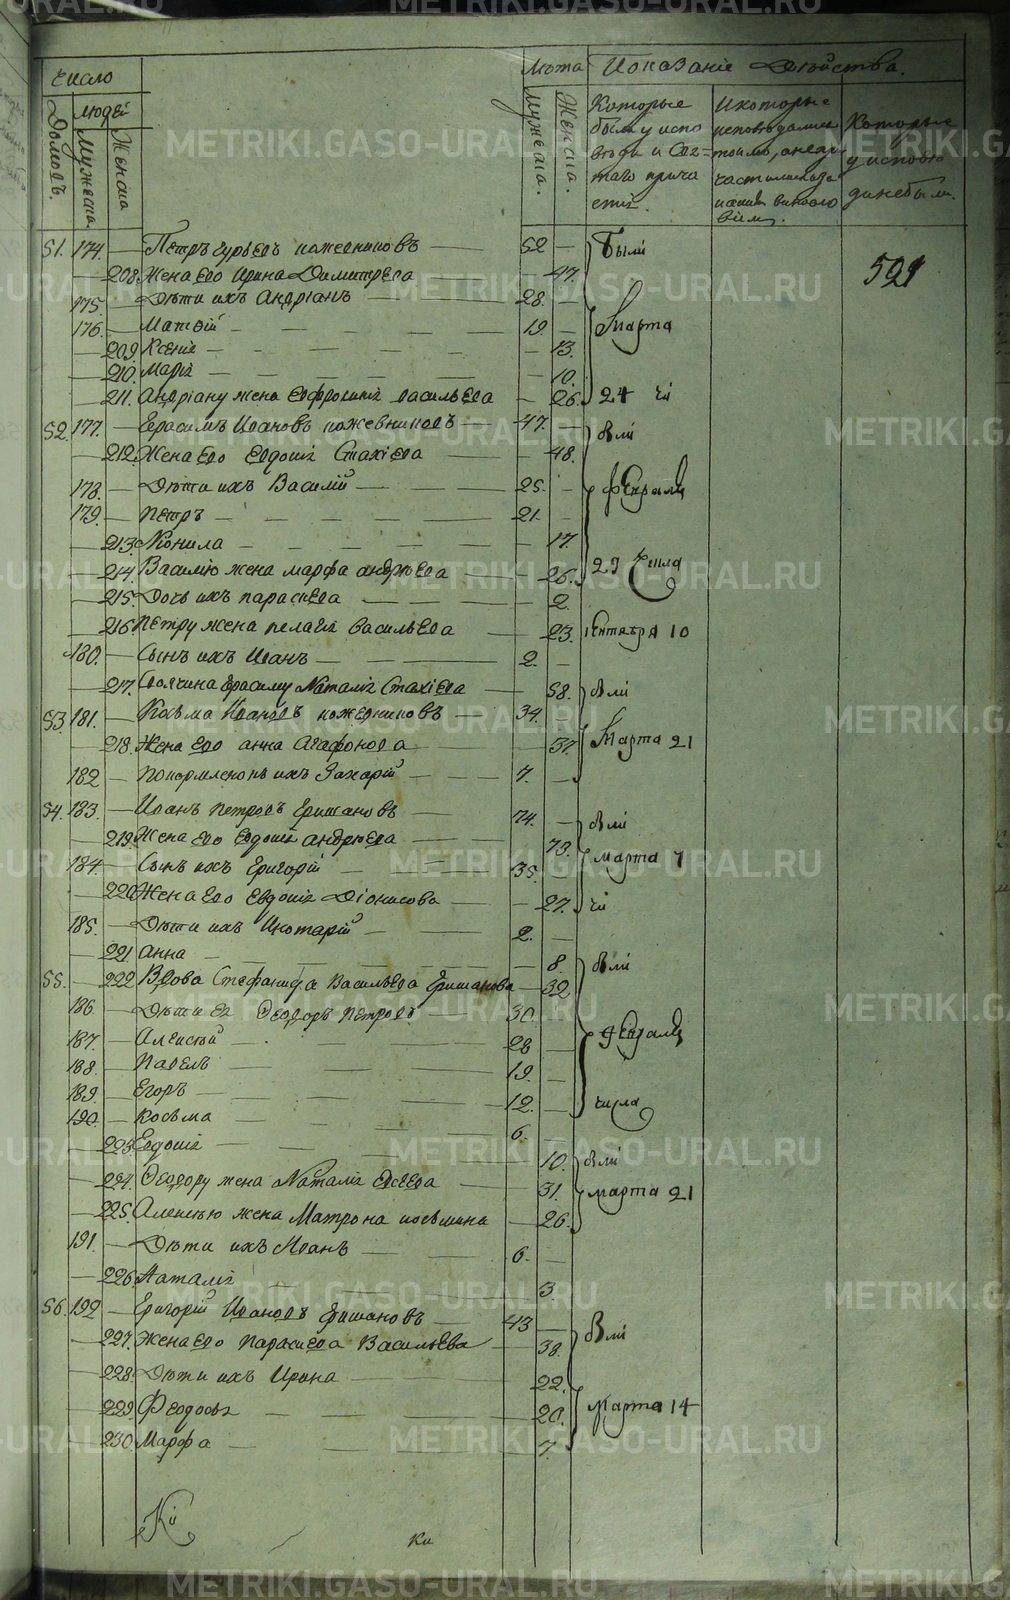 Число
Лѣта Показаніе Дѣйства.
Домовъ.
Людей
Мужеска
Женска
Мужеска.
Женска.
Которые были у исповѣди и Святаго причастія.
И которые исповѣдались токмо, а не причастились
Которые у исповѣди не были.
591
51. 174. — Петръ Гурьевъ кожевниковъ — 52 — Были
— 208 Жена его Ирина Димитрева — 47.
175. — Дѣти ихъ Андріанъ — 28. —
176. — Матѳій — 19. — Марта
— 209 Ксенія — 13.
— 210. Марія — 10.
— 211. Андріану жена Евфросинія васильева — 26. 24 чи
52. 177. — Герасимъ Ивановъ кожевниковъ — 47. — были
— 212. Жена его Евдокія Стахіева — 48.
178. — Дѣти ихъ Василій — 25. — февраля
179. — Петръ — 21. —
— 213. Конила — 17.
— 214. Василію жена марфа андрѣева — 26. 29 числа
— 215. Дочь ихъ параскева — 2.
— 216 Петру жена пелагія васильева — 23. сентября 10
180. — Сынъ ихъ Иванъ — 2. —
— 217. Своячина Герасиму Наталія Стахіева — 58. были
53 181. — Козьма Ивановъ кожевниковъ — 34. —
— 218. Жена его анна Агафонова — 37. Марта 21
182 — ихъ Захарій — 7. —
54. 183. — Иванъ Петровъ Гришановъ — 74. — были
— 219. Жена его Евдокія андрѣева — 73.
184. — Сынъ ихъ Григорій — 35. — марта 7
— 220 Жена его Евдокія Діонисова — 27. чи
185. — Дѣти ихъ — 2. —
— 221 анна — 8. были
55. — 222 Вдова Стефанида Васильева Гришанова — 32
186. — Дѣти ея Ѳеодоръ Петровъ — 30. —
187. — Алексѣй — 28 — февраля
188. — Павелъ — 19. —
189. — Егоръ — 12. — числа
190. — Козьма — 6. —
— 223 Евдокія — 10. были
— 224. Ѳеодору жена Наталія — 31. марта 21
— 225. Алексѣю жена Матрона козьмина — 26.
191. — Дѣти ихъ Иванъ — 6. —
— 226 Наталія — 3
56. 192 — Григорій Ивановъ Гришановъ — 43 — Были
— 227. Жена его параскева Васильева — 38.
— 228 Дѣти ихъ Ирина — 22.
— 229. Феодосья — 20. марта 14
— 230 Марфа — 7.
METRIKI.GASO-URAL.RU